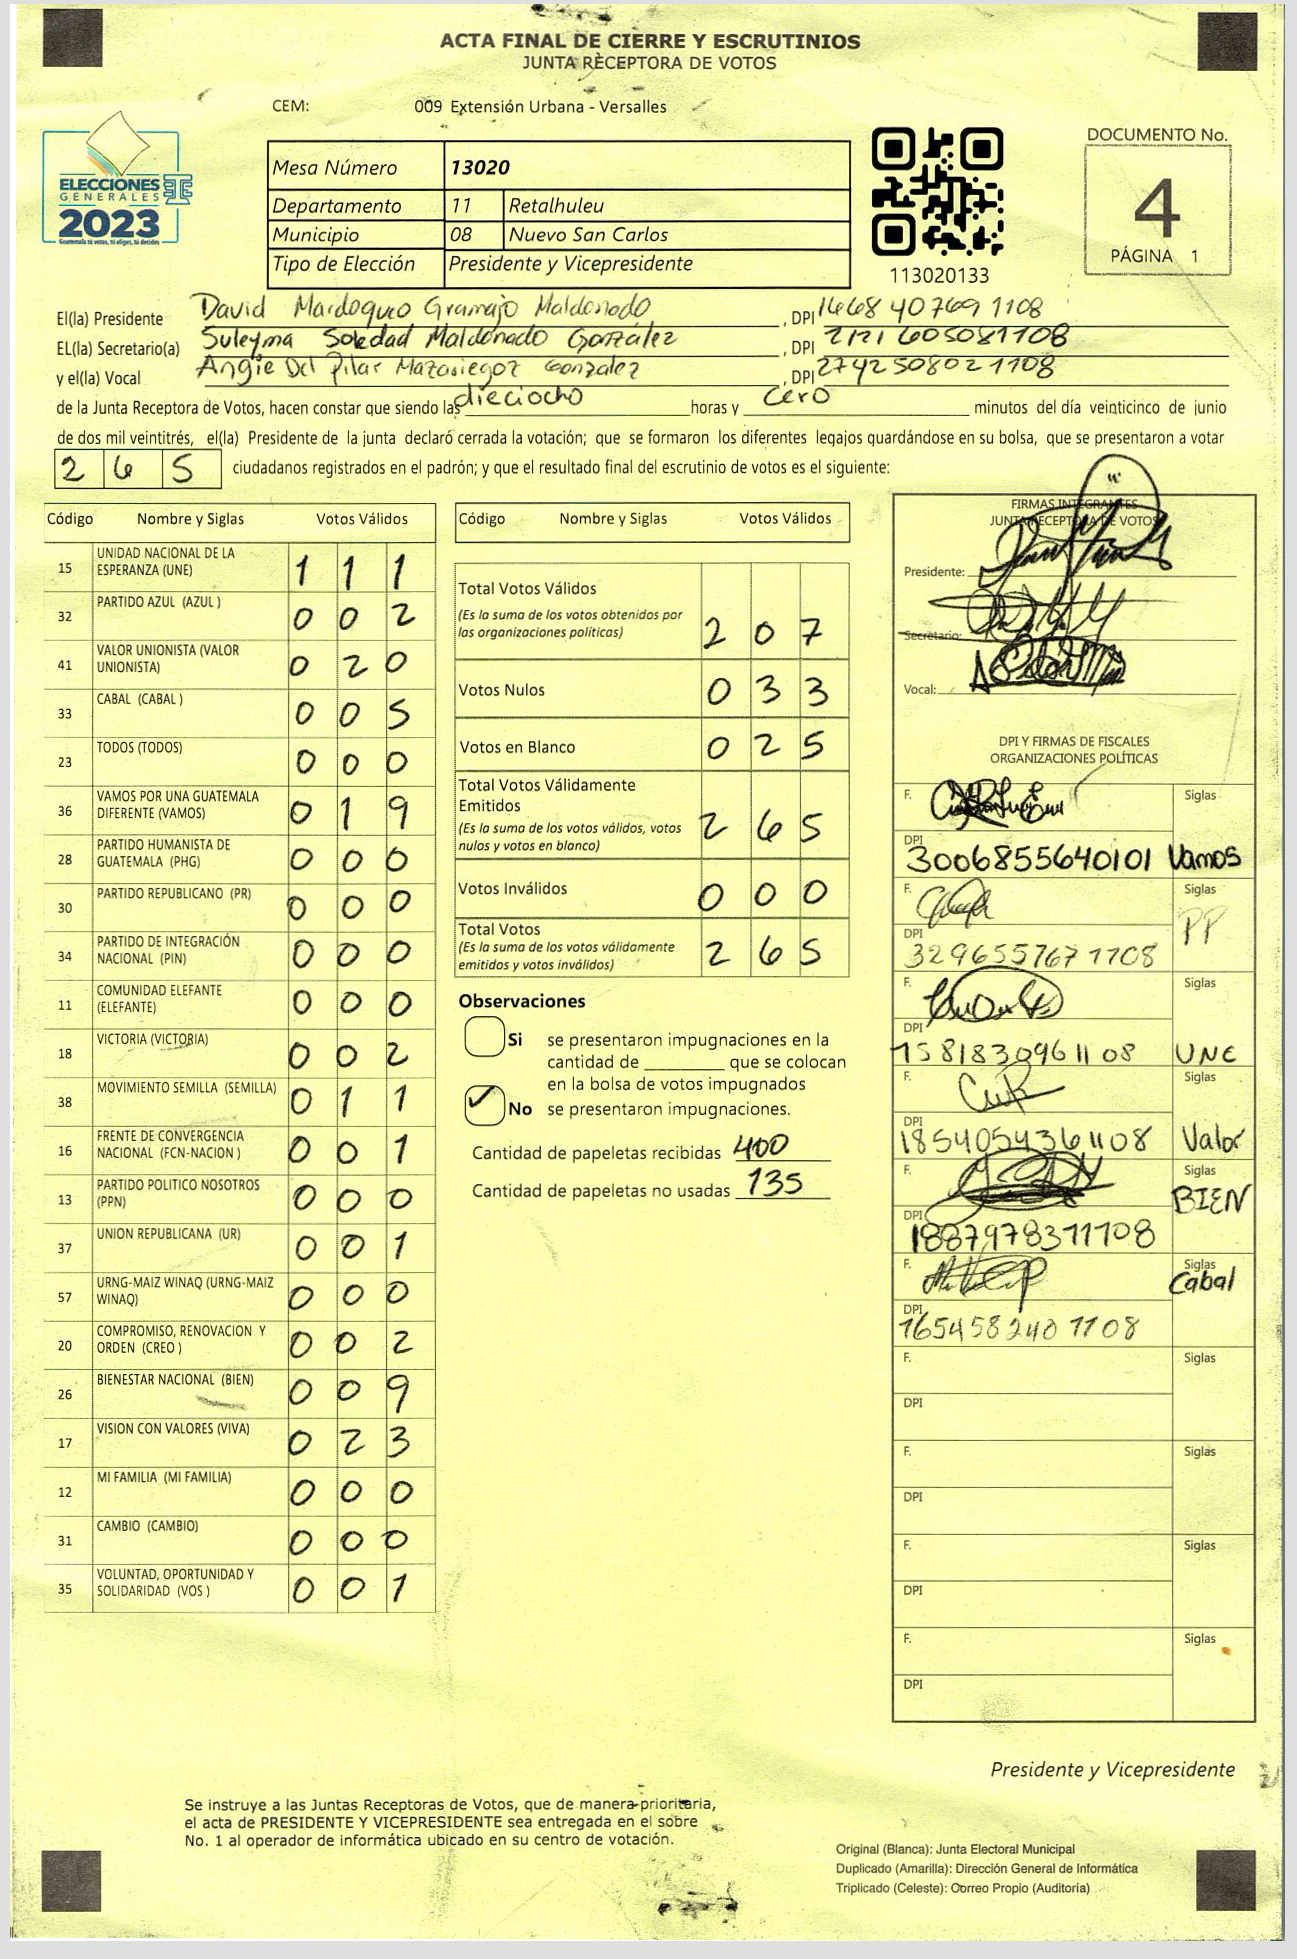 ACTA FINAL DE CIERRE Y ESCRUTINIOS
JUNTA RECEPTORA DE VOTOS
CEM: 009 Extensión Urbana - Versalles
ELECCIONES
GENERALES
2023
Guatemala tú votas, tú eliges, tú decides
Mesa Número 13020
Departamento 11 Retalhuleu
Municipio 08 Nuevo San Carlos
Tipo de Elección Presidente y Vicepresidente
113020133
DOCUMENTO No.
4
PÁGINA 1
El(la) Presidente David Mardoqueo Gramajo Maldonado, DPI 1668 40769 1108
EL(la) Secretario(a) Suleyma Soledad Maldonado González, DPI 2121 60508 1108
y el(la) Vocal Angie Del Pilar Mazariegoz Gonzalez, DPI 2742 50802 1108
de la Junta Receptora de Votos, hacen constar que siendo las dieciocho horas y cero minutos del día veinticinco de junio
de dos mil veintitrés, el(la) Presidente de la junta declaró cerrada la votación; que se formaron los diferentes legajos guardándose en su bolsa, que se presentaron a votar
2 6 5 ciudadanos registrados en el padrón; y que el resultado final del escrutinio de votos es el siguiente:
Código Nombre y Siglas Votos Válidos
15 UNIDAD NACIONAL DE LA ESPERANZA (UNE) 1 1 1
32 PARTIDO AZUL (AZUL ) 0 0 2
41 VALOR UNIONISTA (VALOR UNIONISTA) 0 2 0
33 CABAL (CABAL ) 0 0 5
23 TODOS (TODOS) 0 0 0
36 VAMOS POR UNA GUATEMALA DIFERENTE (VAMOS) 0 1 9
28 PARTIDO HUMANISTA DE GUATEMALA (PHG) 0 0 0
30 PARTIDO REPUBLICANO (PR) 0 0 0
34 PARTIDO DE INTEGRACIÓN NACIONAL (PIN) 0 0 0
11 COMUNIDAD ELEFANTE (ELEFANTE) 0 0 0
18 VICTORIA (VICTORIA) 0 0 2
38 MOVIMIENTO SEMILLA (SEMILLA) 0 1 1
16 FRENTE DE CONVERGENCIA NACIONAL (FCN-NACION ) 0 0 1
13 PARTIDO POLITICO NOSOTROS (PPN) 0 0 0
37 UNION REPUBLICANA (UR) 0 0 1
57 URNG-MAIZ WINAQ (URNG-MAIZ WINAQ) 0 0 0
20 COMPROMISO, RENOVACION Y ORDEN (CREO ) 0 0 2
26 BIENESTAR NACIONAL (BIEN) 0 0 9
17 VISION CON VALORES (VIVA) 0 2 3
12 MI FAMILIA (MI FAMILIA) 0 0 0
31 CAMBIO (CAMBIO) 0 0 0
35 VOLUNTAD, OPORTUNIDAD Y SOLIDARIDAD (VOS ) 0 0 1
Código Nombre y Siglas Votos Válidos
Total Votos Válidos
(Es la suma de los votos obtenidos por
las organizaciones políticas) 2 0 7
Votos Nulos 0 3 3
Votos en Blanco 0 2 5
Total Votos Válidamente
Emitidos
(Es la suma de los votos válidos, votos
nulos y votos en blanco) 2 6 5
Votos Inválidos 0 0 0
Total Votos
(Es la suma de los votos válidamente
emitidos y votos inválidos) 2 6 5
Observaciones
Si se presentaron impugnaciones en la
cantidad de ________ que se colocan
en la bolsa de votos impugnados
✓ No se presentaron impugnaciones.
Cantidad de papeletas recibidas 400
Cantidad de papeletas no usadas 135
FIRMAS INTEGRANTES
JUNTA RECEPTORA DE VOTOS
Presidente:
Secretario:
Vocal:
DPI Y FIRMAS DE FISCALES
ORGANIZACIONES POLÍTICAS
F. Siglas
DPI 3006855640101 Vamos
F. Siglas
DPI 3296557671108 PP
F. Siglas
DPI 1581830961108 UNE
F. Siglas
DPI 1854054361108 Valor
F. Siglas
DPI 1887978371108 BIEN
F. Siglas
DPI 1654582401108 Cabal
F. Siglas
DPI
F. Siglas
DPI
F. Siglas
DPI
F. Siglas
DPI
Presidente y Vicepresidente
Se instruye a las Juntas Receptoras de Votos, que de manera prioritaria,
el acta de PRESIDENTE Y VICEPRESIDENTE sea entregada en el sobre
No. 1 al operador de informática ubicado en su centro de votación.
Original (Blanca): Junta Electoral Municipal
Duplicado (Amarilla): Dirección General de Informática
Triplicado (Celeste): Correo Propio (Auditoría)